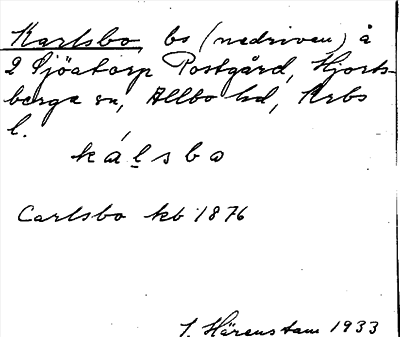 Karlsbo, bs (nedriven) å
2 Sjöatorp Postgård, Hjorts-
berga sn, Allbo hd, Krbs
l.
kálsbo
Carlsbo kb 1876
I. Härenstam 1933